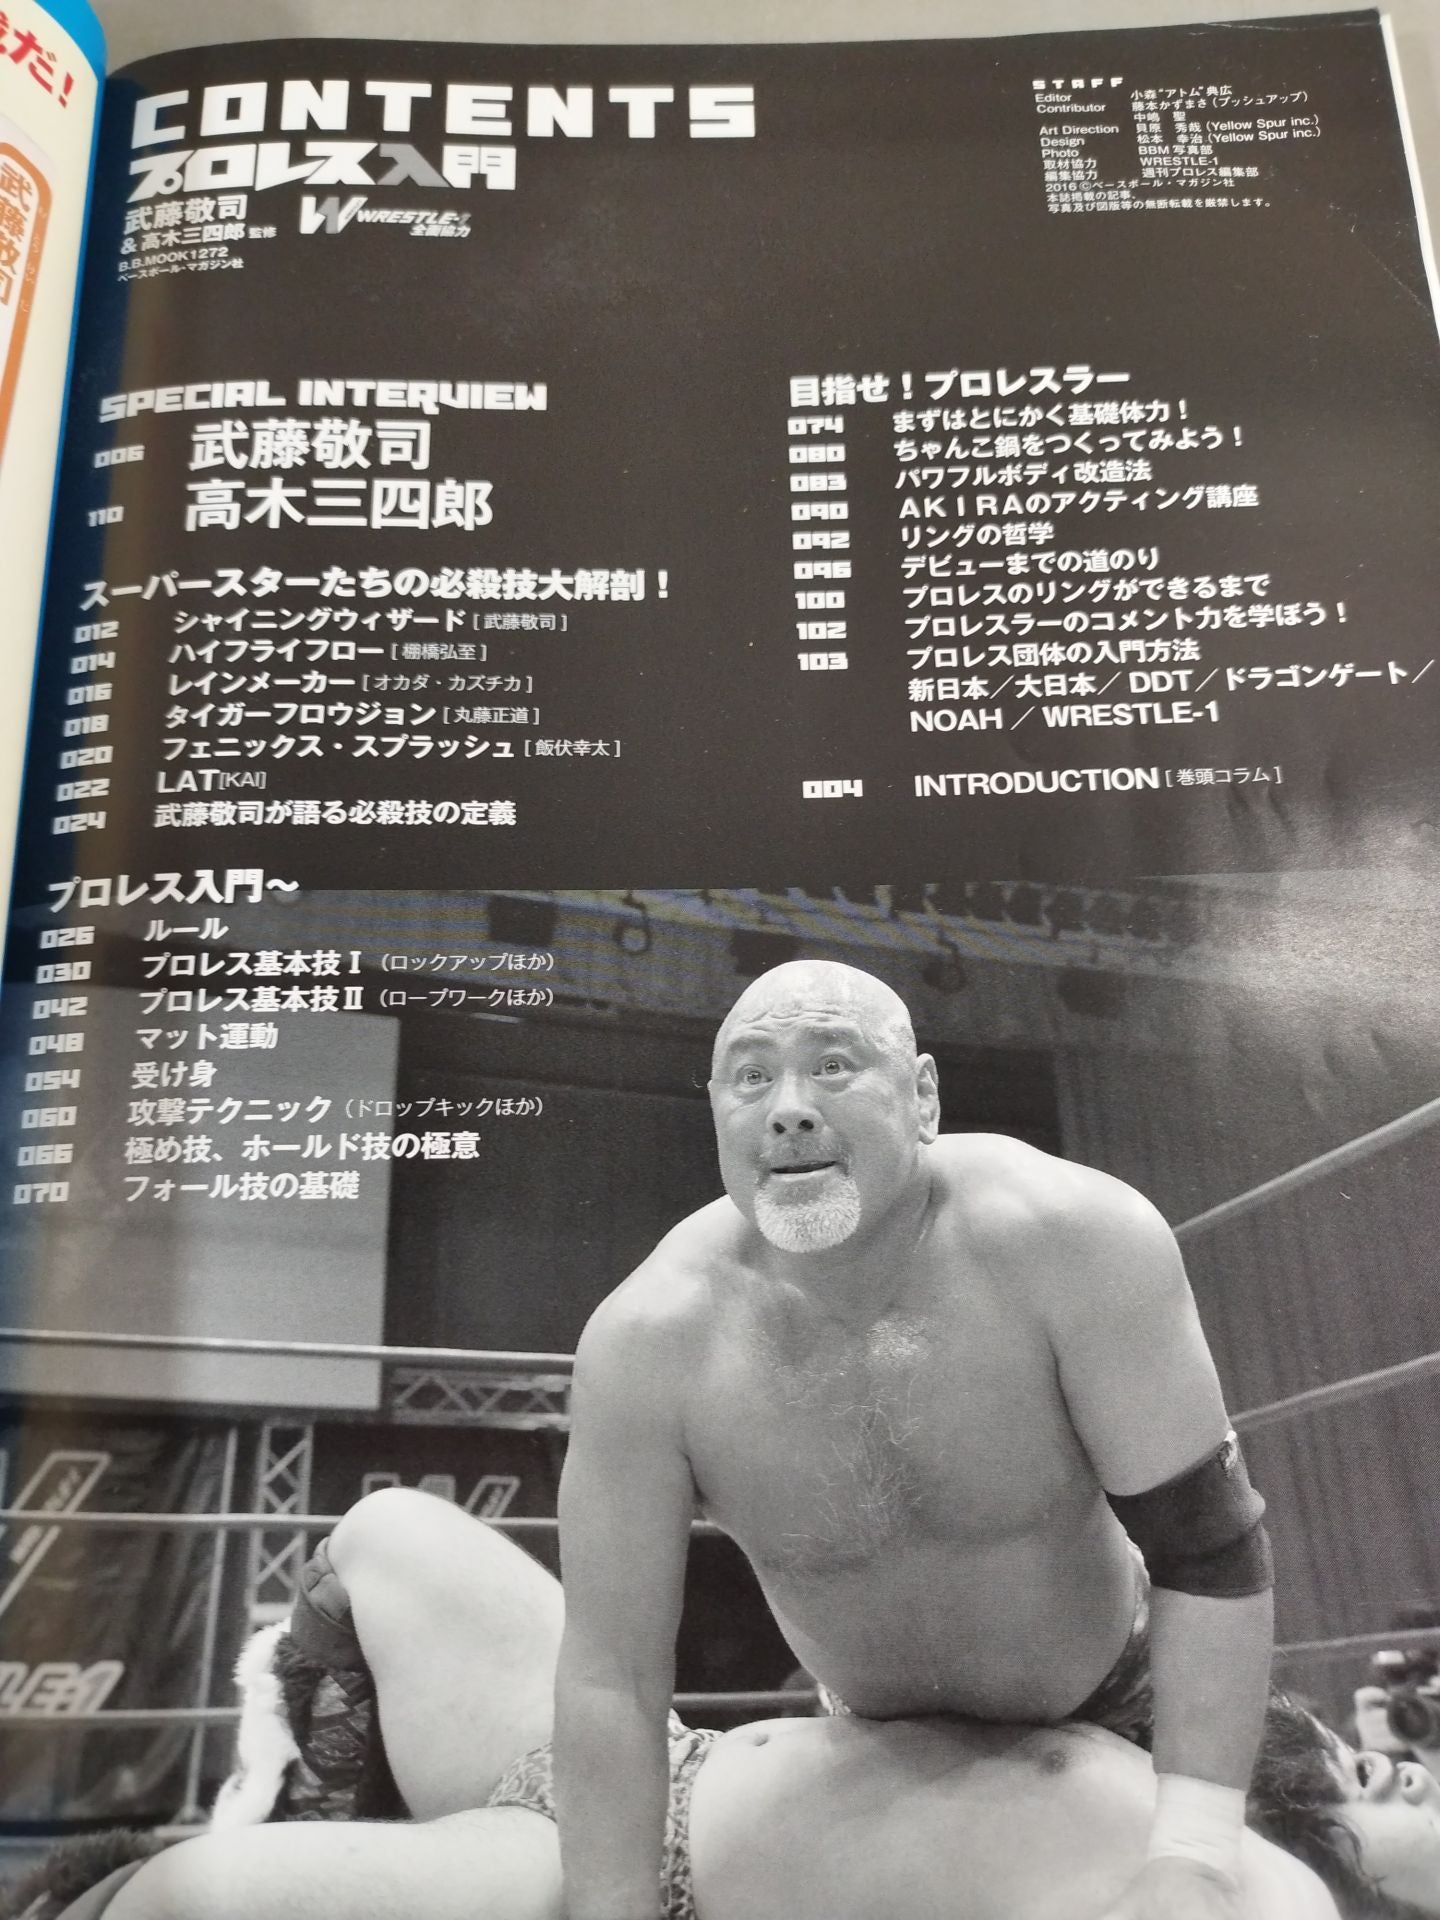 だ!
武藤敬司
CONTENTS
プロレス入門
武藤敬司
&高木三四郎 監修
WRESTLE-1
全面協力
B.B.MOOK1272
ベースボール・マガジン社
STAFF
Editor 小森“アトム”典広
Contributor 藤本かずまさ(プッシュアップ)
中嶋 聖
Art Direction 貝原 秀哉(Yellow Spur inc.)
Design 松本 幸治(Yellow Spur inc.)
Photo BBM写真部
取材協力 WRESTLE-1
編集協力 週刊プロレス編集部
2016©ベースボール・マガジン社
本誌掲載の記事、
写真及び図版等の無断転載を厳禁します。
SPECIAL INTERVIEW
006 武藤敬司
110 高木三四郎
スーパースターたちの必殺技大解剖!
012 シャイニングウィザード[武藤敬司]
014 ハイフライフロー[棚橋弘至]
016 レインメーカー[オカダ・カズチカ]
018 タイガーフロウジョン[丸藤正道]
020 フェニックス・スプラッシュ[飯伏幸太]
022 LAT[KAI]
024 武藤敬司が語る必殺技の定義
プロレス入門〜
026 ルール
030 プロレス基本技Ⅰ(ロックアップほか)
042 プロレス基本技Ⅱ(ロープワークほか)
048 マット運動
054 受け身
060 攻撃テクニック(ドロップキックほか)
066 極め技、ホールド技の極意
070 フォール技の基礎
目指せ!プロレスラー
074 まずはとにかく基礎体力!
080 ちゃんこ鍋をつくってみよう!
083 パワフルボディ改造法
090 AKIRAのアクティング講座
092 リングの哲学
096 デビューまでの道のり
100 プロレスのリングができるまで
102 プロレスラーのコメント力を学ぼう!
103 プロレス団体の入門方法
新日本/大日本/DDT/ドラゴンゲート/
NOAH/WRESTLE-1
004 INTRODUCTION[巻頭コラム]